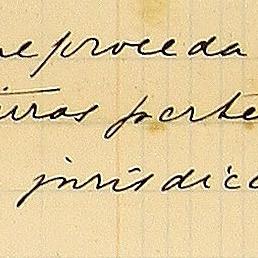 se proceda
tras parte
jurisdicc